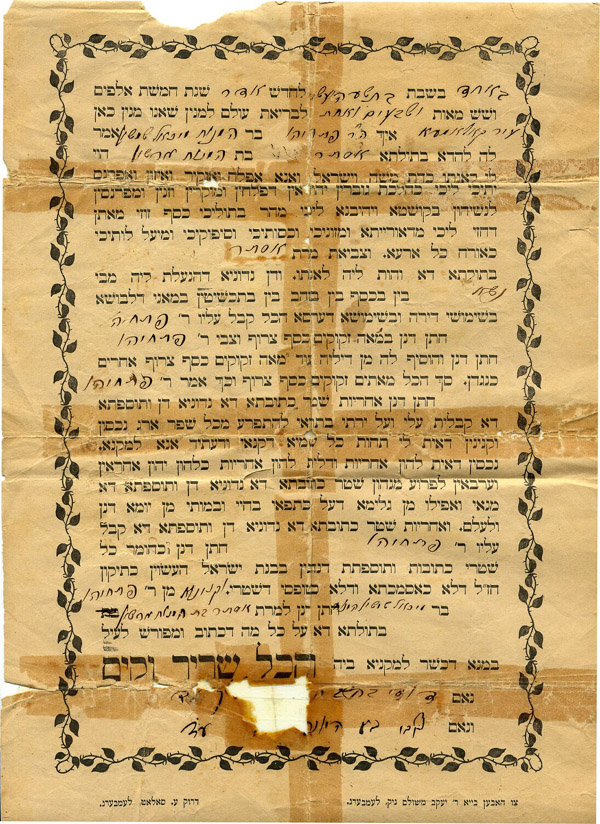 באחד בשבת בתשעה עשר לחדש אדר שנת חמשת אלפים
ושש מאות ושבעים ואחת לבריאת עולם למנין שאנו מנין כאן
עיר איך הר פתחיהו בר אמר
לה להדא בתולתא אסתר בת הוי
לי לאנתו כדת משה וישראל. ואנא אפלח ואוקיר ואיזון ואפרנס
יתיכי ליכי כהלכת גוברין יהודאין דפלחין ומוקרין וזנין ומפרנסין
לנשיהון בקושטא ויהיבנא ליכי מהר בתוליכי כסף זוזי מאתן
דחזי ליכי מדאורייתא ומזוניכי וכסותיכי וסיפוקיכי ומיעל לותיכי
כאורח כל ארעא. וצביאת מרת אסתר
בתולתא דא והות ליה לאנתו. ודן נדוניא דהנעלת ליה מבי
נשא בין בכסף בין בזהב בין בתכשיטין במאני דלבושא
בשימושי דירה ובשימושא דערסא הכל קבל עליו ר׳ פתחיה׳
חתן דנן במאה זקוקים כסף צרוף וצבי ר׳ פתחיהו
חתן דנן והוסיף לה מן דיליה עוד מאה זקוקים כסף צרוף אחרים
כנגדן. סך הכל מאתים זקוקים כסף צרוף וכך אמר ר׳ פתחיהו
חתן דנן אחריות שטר כתובתא דא נדוניא דן ותוספתא
דא קבלית עלי ועל ירתי בתראי להתפרע מכל שפר ארג נכסין
וקנינין דאית לי תחות כל שמיא דקנאי ודעתיד אנא למקנא.
נכסין דאית להון אחריות ודלית להון אחריות כלהון יהון אחראין
וערבאין לפרוע מנהון שטר כתובתא דא נדוניא דן ותוספתא דא
מנאי ואפילו מן גלימא דעל כתפאי בחיי ובמותי מן יומא דנן
ולעלם. ואחריות שטר כתובתא דא נדוניא דן ותוספתא דא קבל
עליו ר׳ פתחיהו חתן דנן וכחומר כל
שטרי כתובות ותוספתת דנהגין בבנת ישראל העשוין כתיקון
חז״ל דלא כאסמכתא ודלא כטופסי דשטרי. וקנינא מן ר׳ פתחיהו
בר חתן דנן למרת אסתר בת
בתולתא דא על כל מה דכתוב ומפורש לעיל
במנא דכשר למקניא ביה הכל שריר וקים
נאם
ונאם עד
צו האבען בייא ר׳ יעקב משולם ניק, לעמבערג.
דרוק ע. סאלאט, לעמבערג.